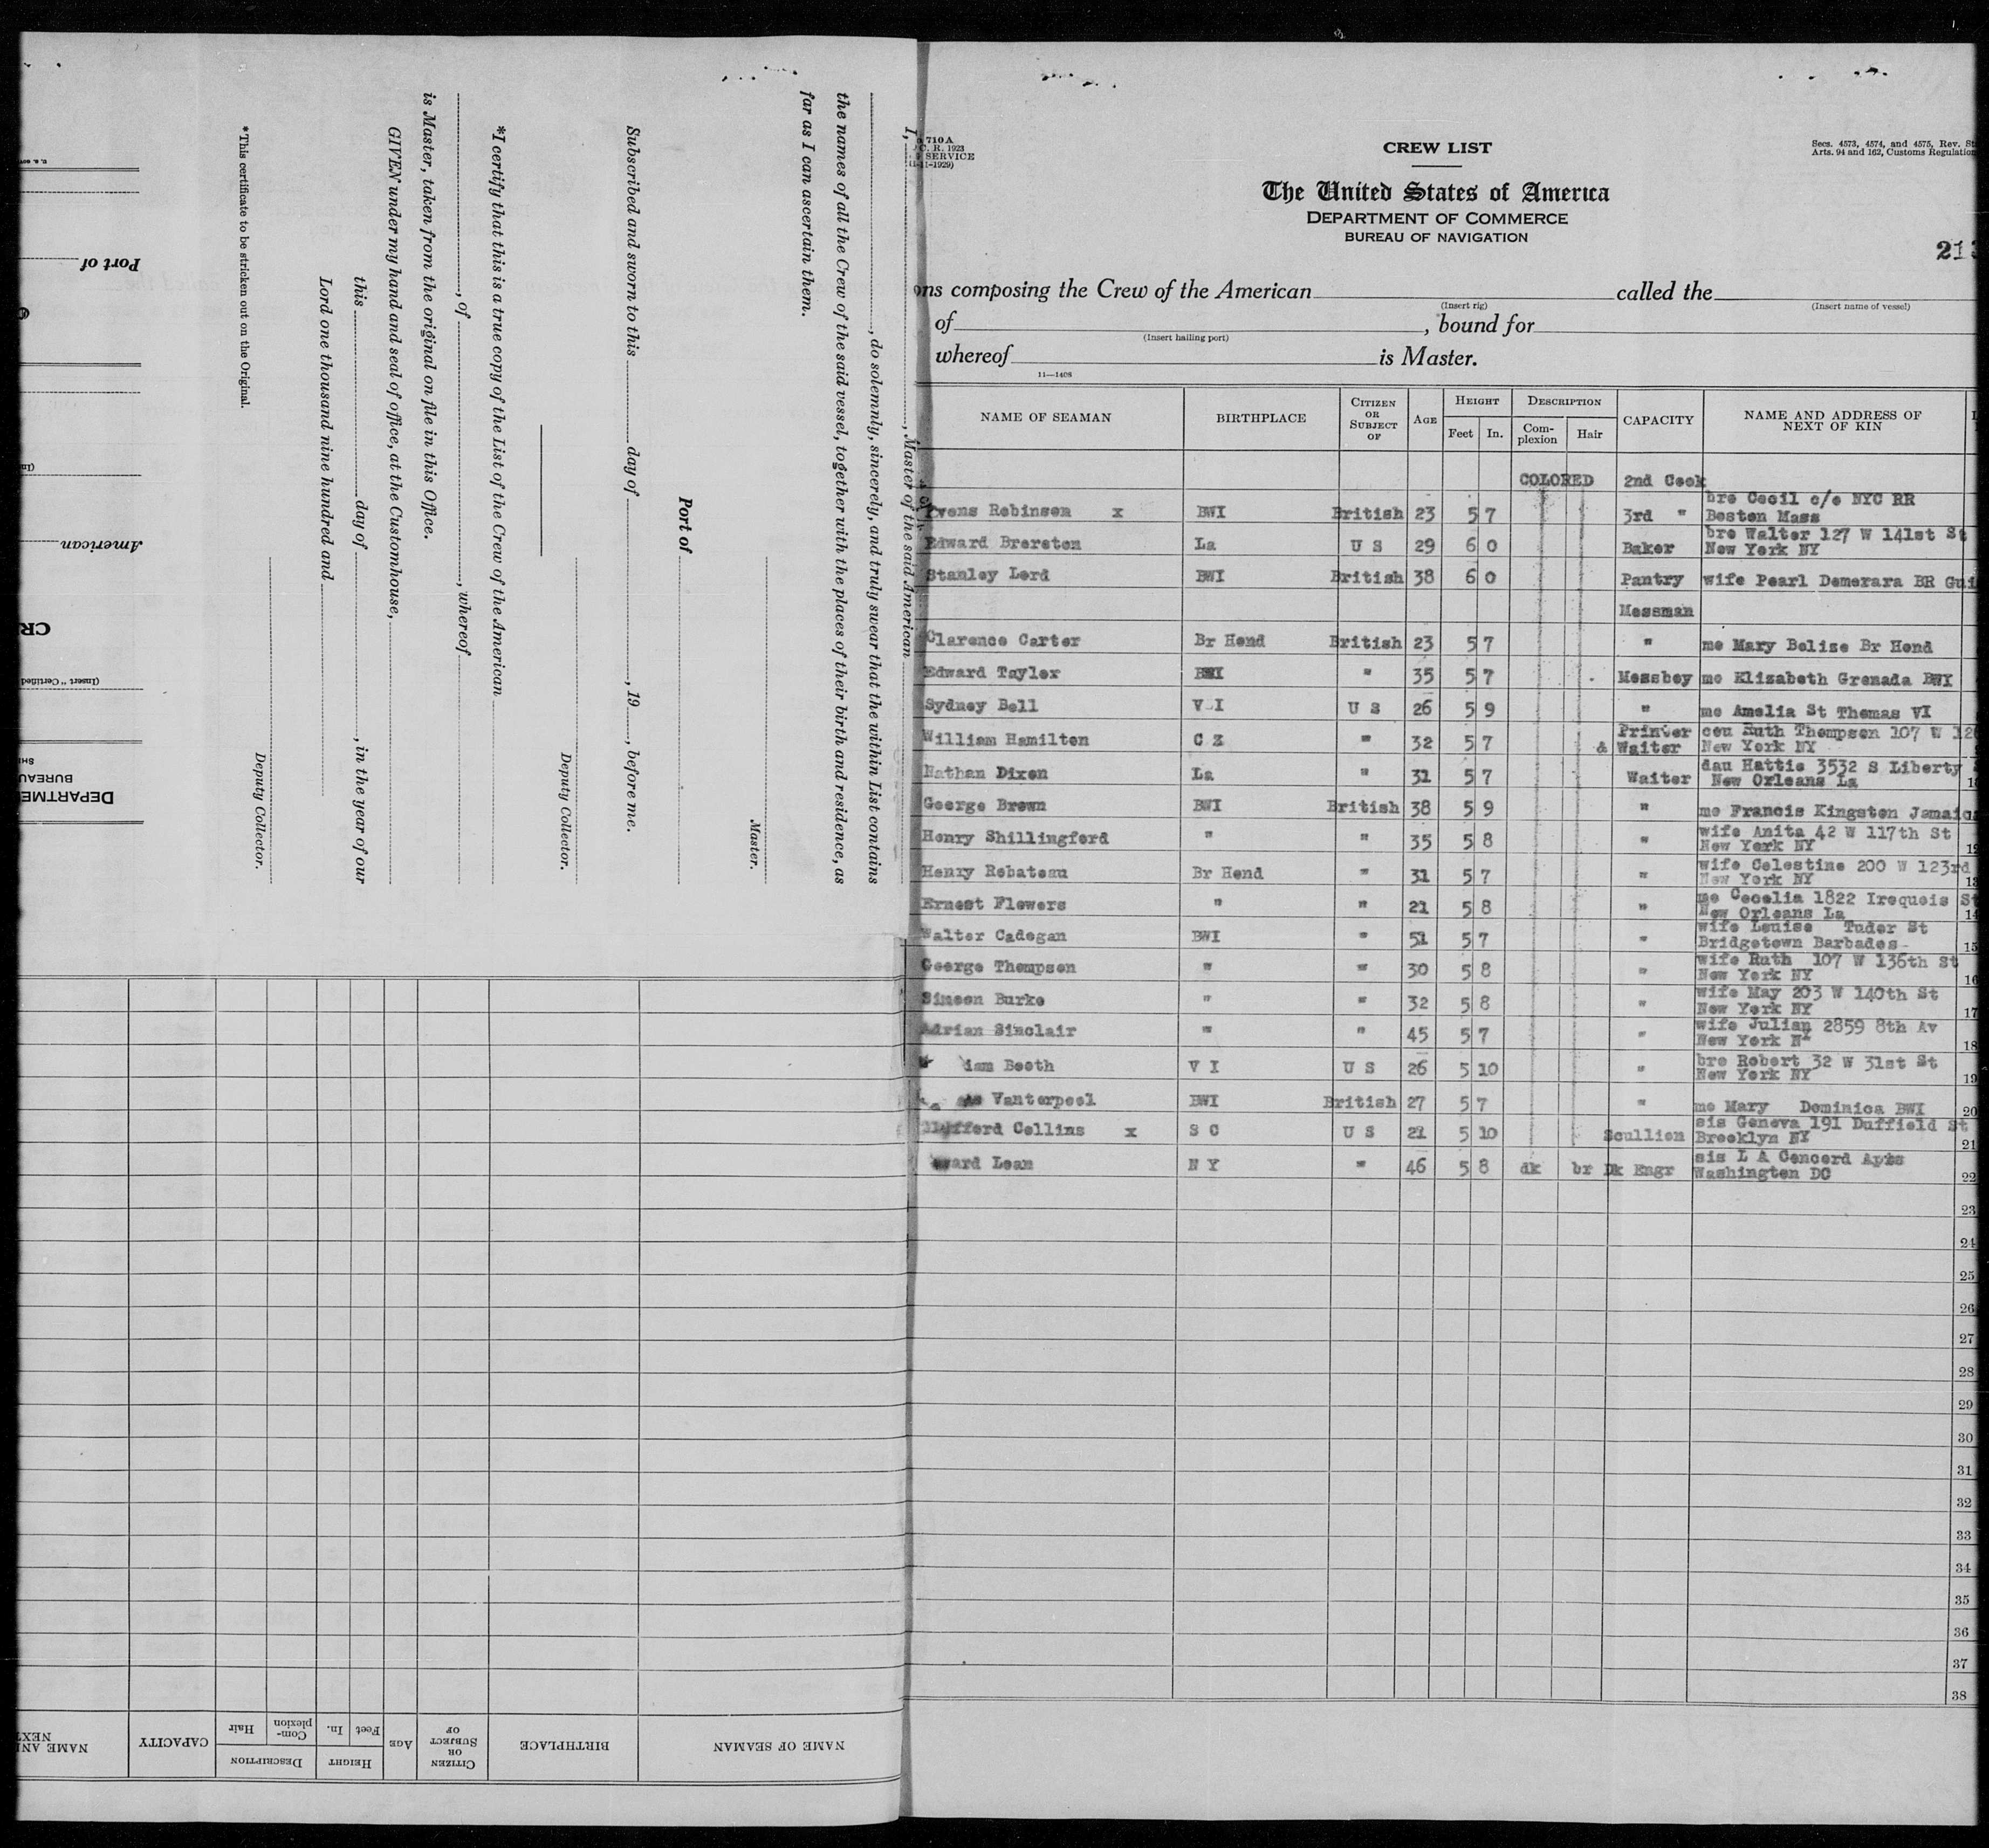 710 A
C. R. 1923
SERVICE
11-1929)
CREW LIST
Secs. 4573, 4574, and 4575, Rev. St
Arts. 94 and 162, Customs Regulation
The United States of America
DEPARTMENT OF COMMERCE
BUREAU OF NAVIGATION
213
ons composing the Crew of the American called the
(Insert rig) (Insert name of vessel)
of , bound for
(Insert hailing port)
whereof is Master.
11—1408
NAME OF SEAMAN BIRTHPLACE CITIZEN OR SUBJECT OF AGE HEIGHT Feet In. DESCRIPTION Complexion Hair CAPACITY NAME AND ADDRESS OF NEXT OF KIN
COLORED 2nd Cook
bro Cecil c/o NYC RR
Evens Robinson x BWI British 23 5 7 3rd " Boston Mass
bro Walter 127 W 141st St
Edward Brereton La U S 29 6 0 Baker New York NY
Stanley Lord BWI British 38 6 0 Pantry wife Pearl Demerara BR Gui
Messman
Clarence Carter Br Hond British 23 5 7 " mo Mary Belise Br Hond
Edward Taylor BWI " 35 5 7 Messboy mo Elizabeth Grenada BWI
Sydney Bell V I U S 26 5 9 " mo Amelia St Thomas VI
Printer cou Ruth Thompson 107 W 12
William Hamilton C Z " 32 5 7 & Waiter New York NY
dau Hattie 3532 S Liberty
Nathan Dixon La " 31 5 7 Waiter New Orleans La
George Brown BWI British 38 5 9 " mo Francis Kingston Jamaica
wife Anita 42 W 117th St
Henry Shillingford " " 35 5 8 " New York NY 12
wife Celestine 200 W 123rd
Henry Robateau Br Hond " 31 5 7 " New York NY 13
mo Cecelia 1822 Iroquois St
Ernest Flowers " " 21 5 8 " New Orleans La 14
wife Louise Tudor St
Walter Cadogan BWI " 51 5 7 " Bridgetown Barbados- 15
wife Ruth 107 W 136th St
George Thompson " " 30 5 8 " New York NY 16
wife May 203 W 140th St
Simeon Burke " " 32 5 8 " New York NY 17
wife Julian 2859 8th Av
Adrian Sinclair " " 45 5 7 " New York 18
bro Robert 32 W 31st St
iam Booth V I U S 26 5 10 " New York NY 19
Vanterpool BWI British 27 5 7 " mo Mary Dominica BWI 20
sis Geneva 191 Duffield St
Collins x S C U S 21 5 10 Scullion Brooklyn NY 21
sis L A Concord Apts
ward Lean N Y " 46 5 8 dk br Dk Engr Washington DC 22
23
24
25
26
27
28
29
30
31
32
33
34
35
36
37
38
I, , Master of the said American
, do solemnly, sincerely, and truly swear that the within List contains
the names of all the Crew of the said vessel, together with the places of their birth and residence, as
far as I can ascertain them.
Master.
Port of
Subscribed and sworn to this day of , 19 , before me.
Deputy Collector.
*I certify that this is a true copy of the List of the Crew of the American
, of , whereof
is Master, taken from the original on file in this Office.
GIVEN under my hand and seal of office, at the Customhouse,
this day of , in the year of our
Lord one thousand nine hundred and
Deputy Collector.
*This certificate to be stricken out on the Original.
DEPARTME
BUREAU
(Insert "Certified
CR
American
Port of
NAME OF SEAMAN BIRTHPLACE CITIZEN OR SUBJECT OF AGE HEIGHT Feet In. DESCRIPTION Complexion Hair CAPACITY NAME AN
NEXT